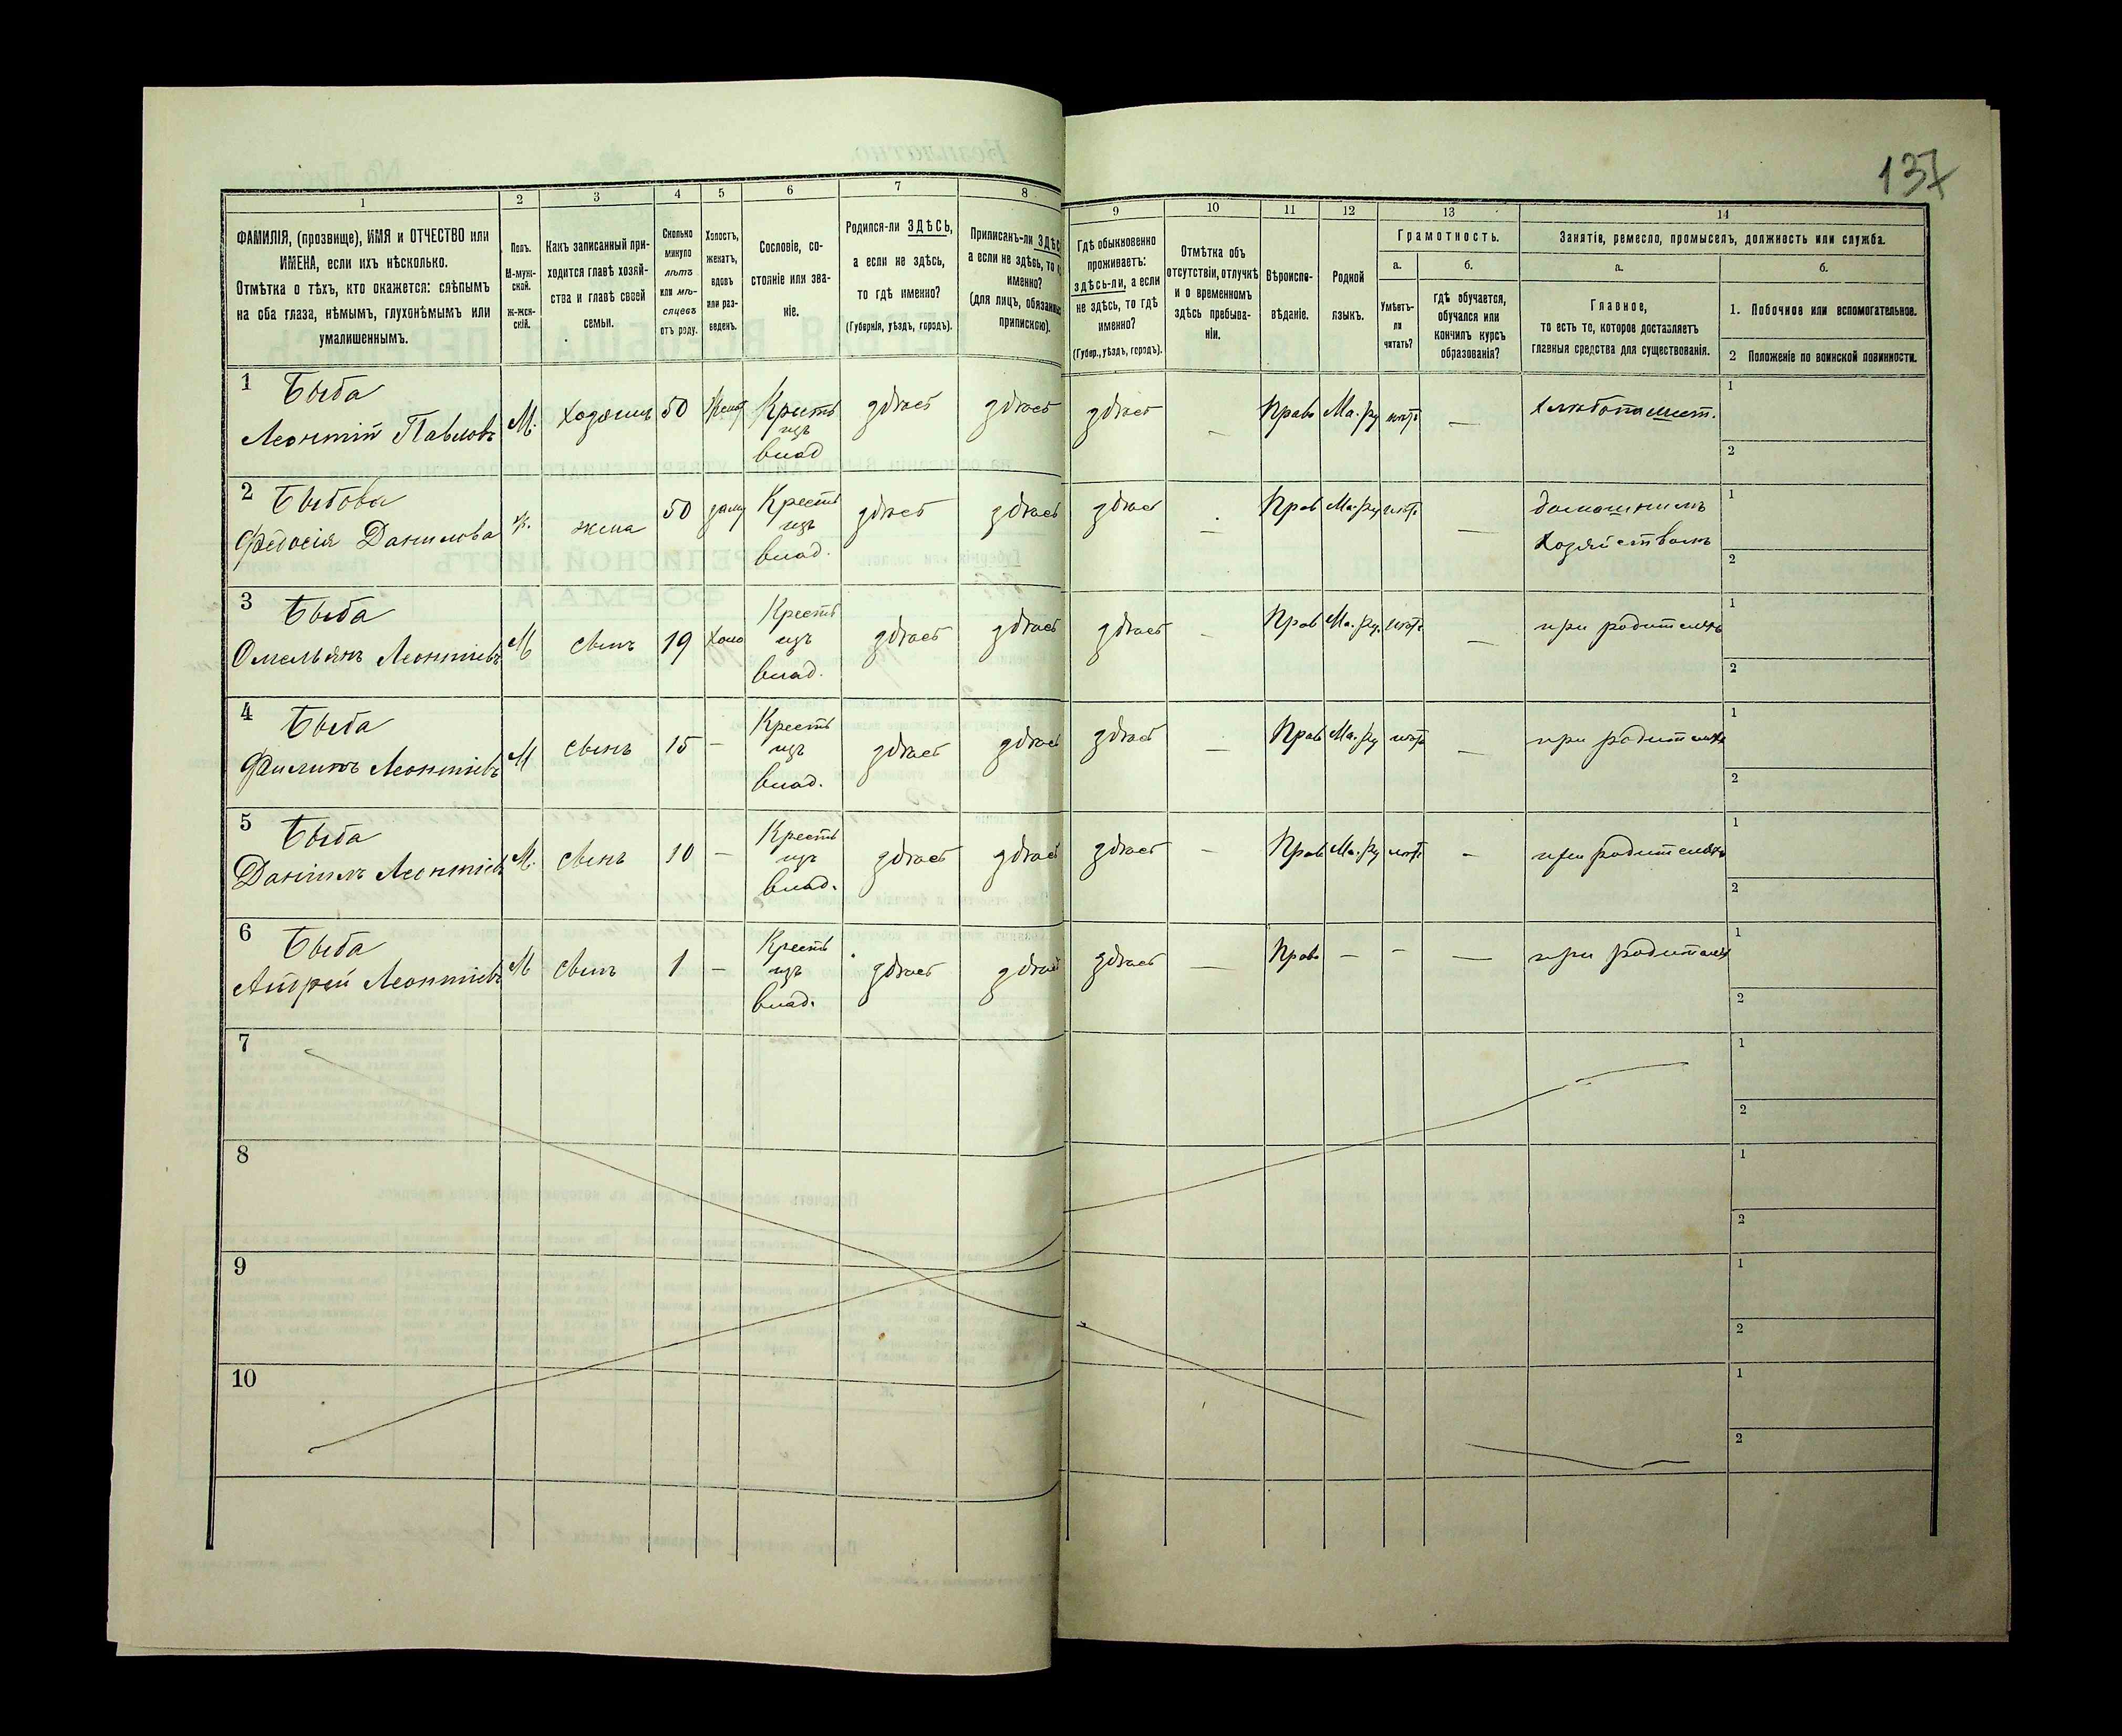 137
1 2 3 4 5 6 7 8 9 10 11 12 13 14
ФАМИЛІЯ, (прозвище), ИМЯ и ОТЧЕСТВО или
ИМЕНА, если ихъ нѣсколько.
Отмѣтка о тѣхъ, кто окажется: слѣпымъ
на оба глаза, нѣмымъ, глухонѣмымъ или
умалишеннымъ.
Полъ.
М-муж-
ской.
Ж-жен-
скій.
Какъ записанный при-
ходится главѣ хозяй-
ства и главѣ своей
семьи.
Сколько
минуло
лѣтъ
или мѣ-
сяцевъ
отъ роду.
Холостъ,
женатъ,
вдовъ
или раз-
веденъ.
Сословіе, со-
стояніе или зва-
ніе.
Родился-ли ЗДѢСЬ,
а если не здѣсь,
то гдѣ именно?
(Губернія, уѣздъ, городъ).
Приписанъ-ли ЗДѢС
а если не здѣсь, то
именно?
(для лицъ, обязанны
припискою).
Гдѣ обыкновенно
проживаетъ:
здѣсь-ли, а если
не здѣсь, то гдѣ
именно?
(Губер., уѣздъ, городъ).
Отмѣтка объ
отсутствіи, отлучкѣ
и о временномъ
здѣсь пребыва-
ніи.
Вѣроиспо-
вѣданіе.
Родной
языкъ.
Грамотность.
а.
Умѣетъ-
ли
читать?
б.
гдѣ обучается,
обучался или
кончилъ курсъ
образованія?
Занятіе, ремесло, промыселъ, должность или служба.
а.
Главное,
то есть то, которое доставляетъ
главныя средства для существованія.
б.
1. Побочное или вспомогательное.
2 Положеніе по воинской повинности.
1 Быба
Леонтій Павловъ М. хозяинъ 50 Жена Крест изъ влад здѣсь здѣсь здѣсь — Право Ма. ру нѣтъ — хлѣбопашест. 1
2
2 Быбова
Федосія Данилова ж. жена 50 заму Крест изъ влад. здѣсь здѣсь здѣсь — Прав Ма. ру нѣтъ — домашнимъ хозяйствомъ 1
2
3 Быба
Омельянъ Леонтіевъ М сынъ 19 холо Крест изъ влад. здѣсь здѣсь здѣсь — Прав Ма. ру. нѣтъ — при родителяхъ 1
2
4 Быба
Филипъ Леонтіевъ М сынъ 15 — Крест изъ влад. здѣсь здѣсь здѣсь — Прав Ма. ру нѣтъ — при родителяхъ 1
2
5 Быба
Данилъ Леонтіевъ М. сынъ 10 — Крест изъ влад. здѣсь здѣсь здѣсь — Прав Ма. ру нѣтъ — при родителяхъ 1
2
6 Быба
Андрей Леонтіевъ М сынъ 1 — Крест изъ влад. здѣсь здѣсь здѣсь — Право — — — при родителях 1
2
7 1
2
8 1
2
9 1
2
10 1
2